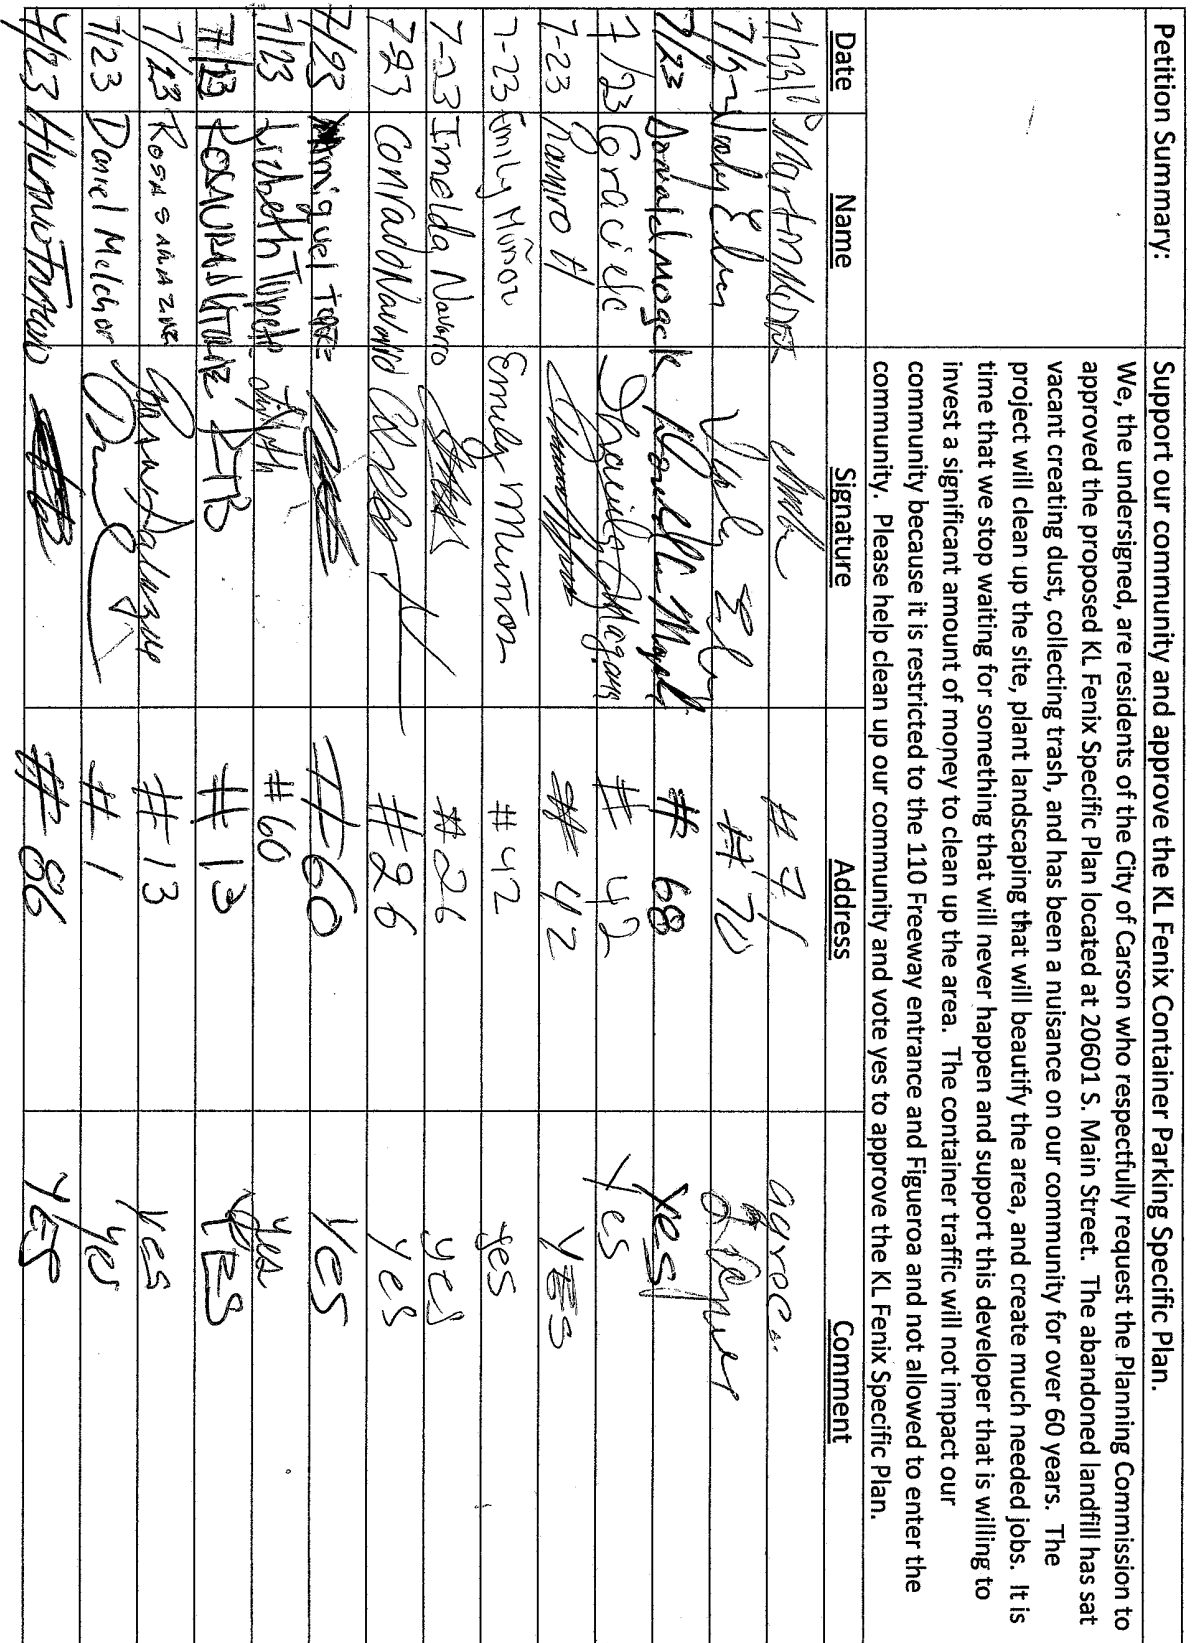 Petition Summary:
Support our community and approve the KL Fenix Container Parking Specific Plan.
We, the undersigned, are residents of the City of Carson who respectfully request the Planning Commission to
approved the proposed KL Fenix Specific Plan located at 20601 S. Main Street. The abandoned landfill has sat
vacant creating dust, collecting trash, and has been a nuisance on our community for over 60 years. The
project will clean up the site, plant landscaping that will beautify the area, and create much needed jobs. It is
time that we stop waiting for something that will never happen and support this developer that is willing to
invest a significant amount of money to clean up the area. The container traffic will not impact our
community because it is restricted to the 110 Freeway entrance and Figueroa and not allowed to enter the
community. Please help clean up our community and vote yes to approve the KL Fenix Specific Plan.
Date Name Signature Address Comment
# 71 agree.
# 70
7/23 Donald mogck # 68 Yes
7/23 # 42 Yes
7-23 Ramiro H # 42 YES
7-23 Emily Muñoz Emily Munoz #42 yes
7-23 Imelda Navarro #26 yes
7-23 Conrad Navarro #26 yes
7/23 Miguel #60 Yes
7/23 Lizbeth Topete #60 yes
7/23 #13 YES
7/23 #13 Yes
7/23 Daniel Melchor #1 yes
7/23 #86 YES